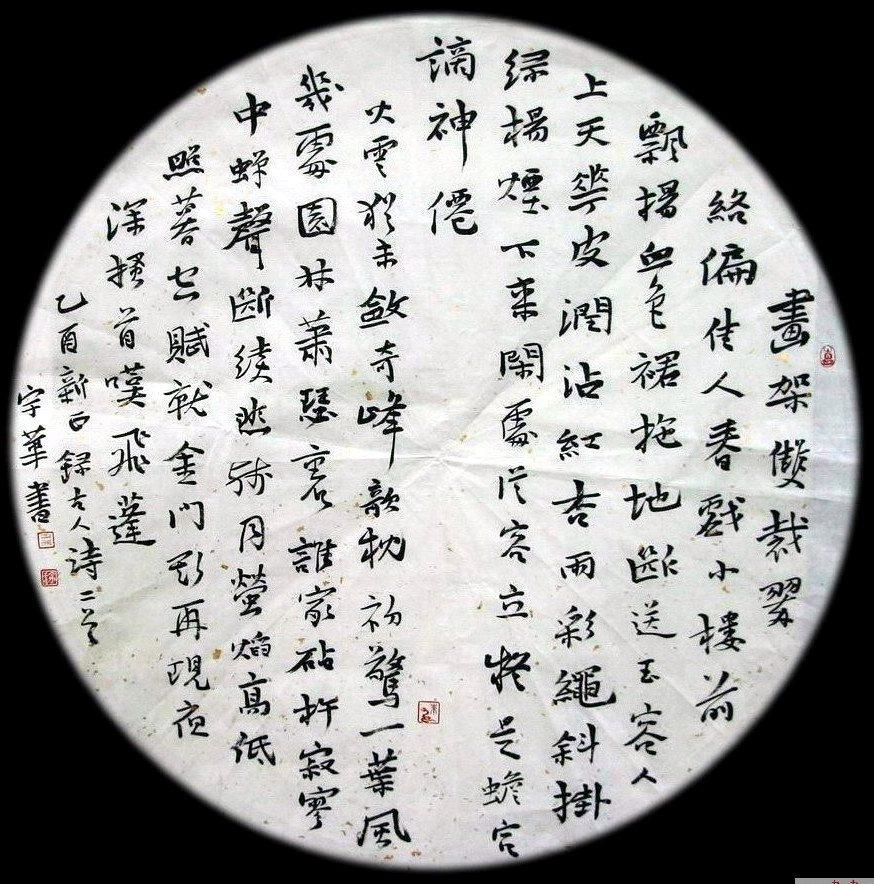 畫架雙裁翠
絡偏佳人春戲小樓前
飄揚血色裙拖地斷送玉容人
上天華皮潤沾紅杏雨彩繩斜掛
綠楊煙下來閑處從容立疑是蟾宮
謫神僊
火雲猶未斂奇峰欹枕初驚一葉風
幾處園林蕭瑟裏誰家砧杵寂寥
中蟬聲斷續悲殘月螢焰高低
照暮空賦就金門期再現夜
深搔首嘆飛蓬
乙酉新正錄古人詩二首
宇華書